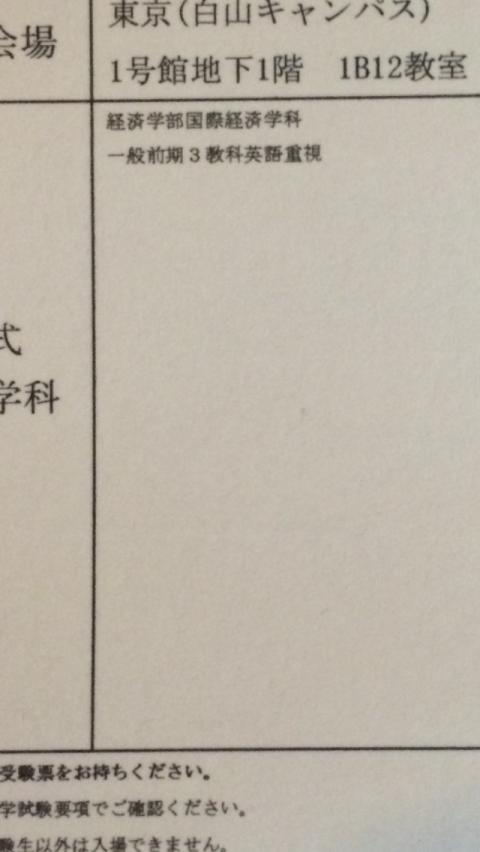 会場
東京(白山キャンパス)
1号館地下1階　1B12教室
経済学部国際経済学科
一般前期3教科英語重視
式
学科
受験票をお持ちください。
学試験要項でご確認ください。
験生以外は入場できません。